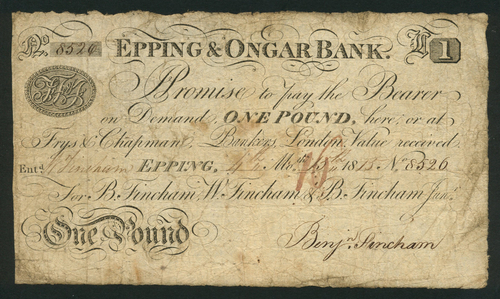 No 8526 EPPING & ONGAR BANK. £ 1
I Promise to pay the Bearer
on Demand, ONE POUND, here, or at
Frys & Chapman, Bankers, London, Value received
Entd. EPPING, 4th 1815. No 8526
For B. Fincham, W. Fincham & B. Fincham Junr.
One Pound Benjn. Fincham